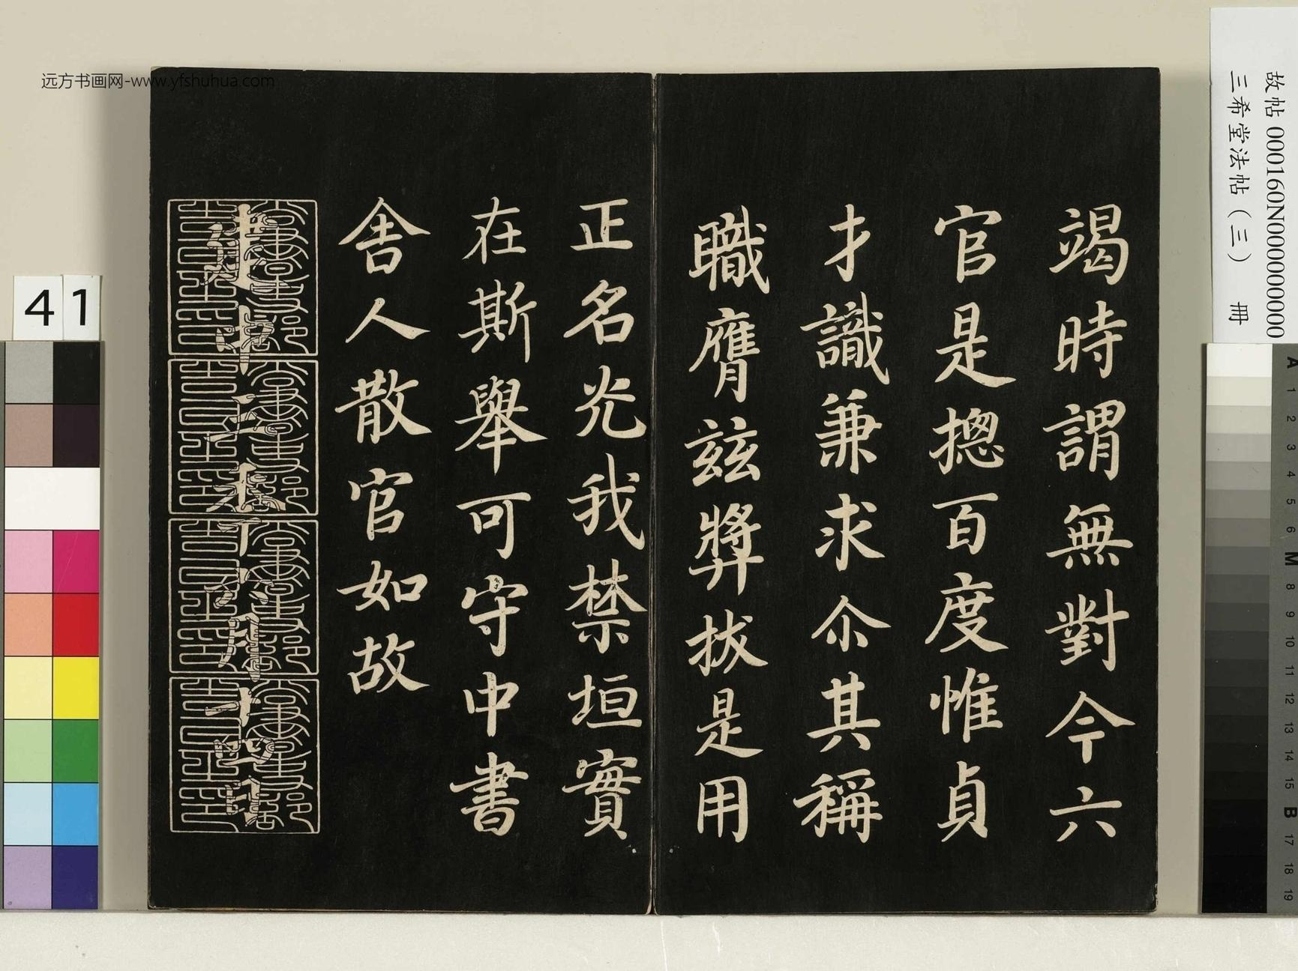 远方书画网-www.yfshuhua.com
故帖 000160N000000000
三希堂法帖（三） 冊
竭時謂無對今六
官是摠百度惟貞
才識兼求尒其稱
職膺茲奬拔是用
正名光我禁垣實
在斯舉可守中書
舍人散官如故
41
A 1 2 3 4 5 6 M 8 9 10 11 12 13 14 15 B 17 18 19